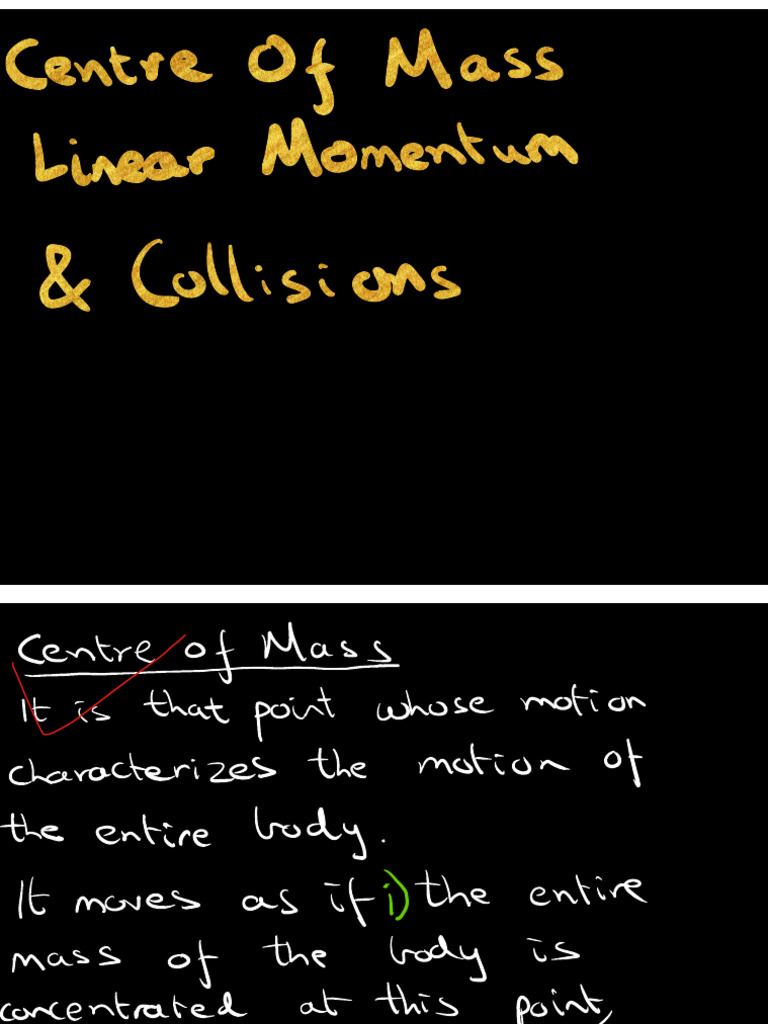 Centre Of Mass
Linear Momentum
& Collisions
Centre of Mass
It is that point whose motion
characterizes the motion of
the entire body.
It moves as if i) the entire
mass of the body is
concentrated at this point,